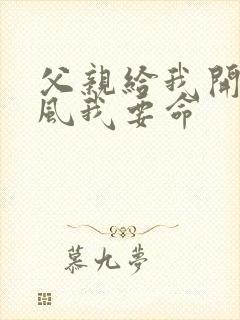 父親給我開
風我要命
慕九夢